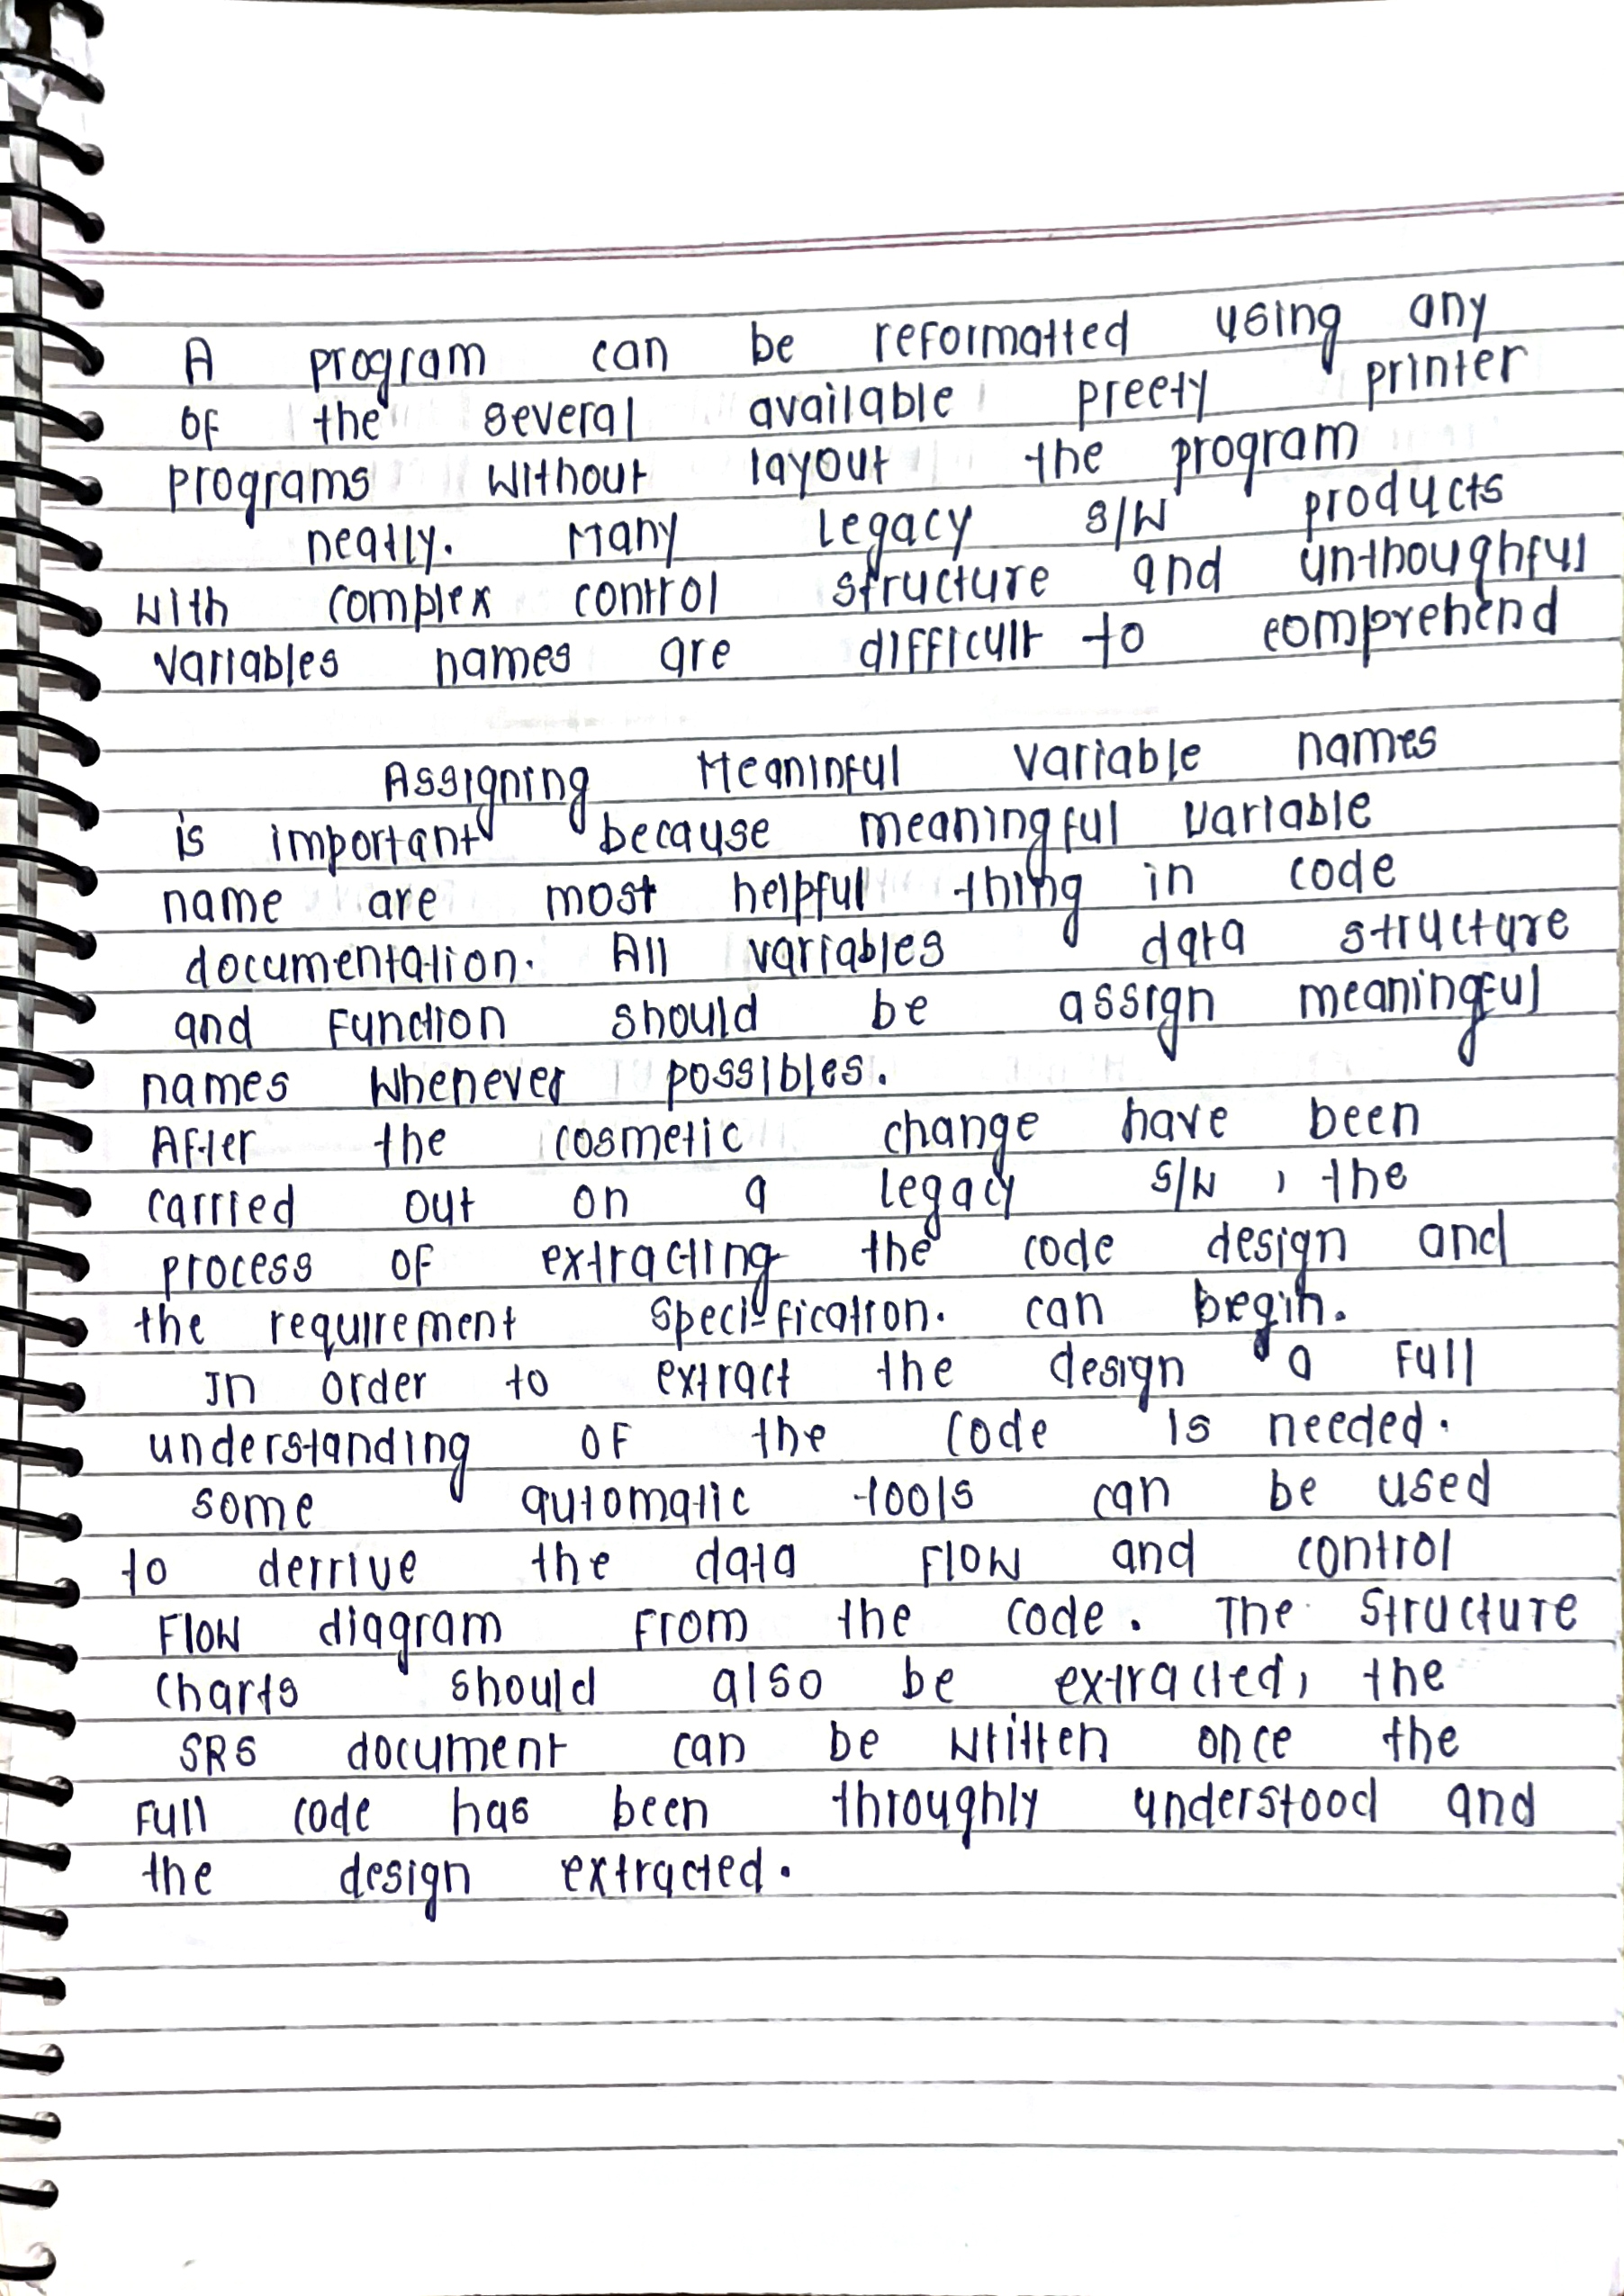 A program can be reformatted using any
of the several available preety printer
programs without layout the program
neatly. Many legacy s/w products
with complex control structure and unthoughful
variables names are difficult to comprehend
Assigning Meaninful variable names
is important because meaningful variable
name are most helpful thing in code
documentation. All variables data structure
and function should be assign meaningful
names whenever possibles.
After the cosmetic change have been
carried out on a legacy s/w , the
process of extracting the code design and
the requirement specification. can begin.
In order to extract the design a full
understanding of the code is needed.
some automatic tools can be used
to derrive the data flow and control
flow diagram from the code. The structure
charts should also be extracted, the
SRS document can be written once the
full code has been throughly understood and
the design extracted.